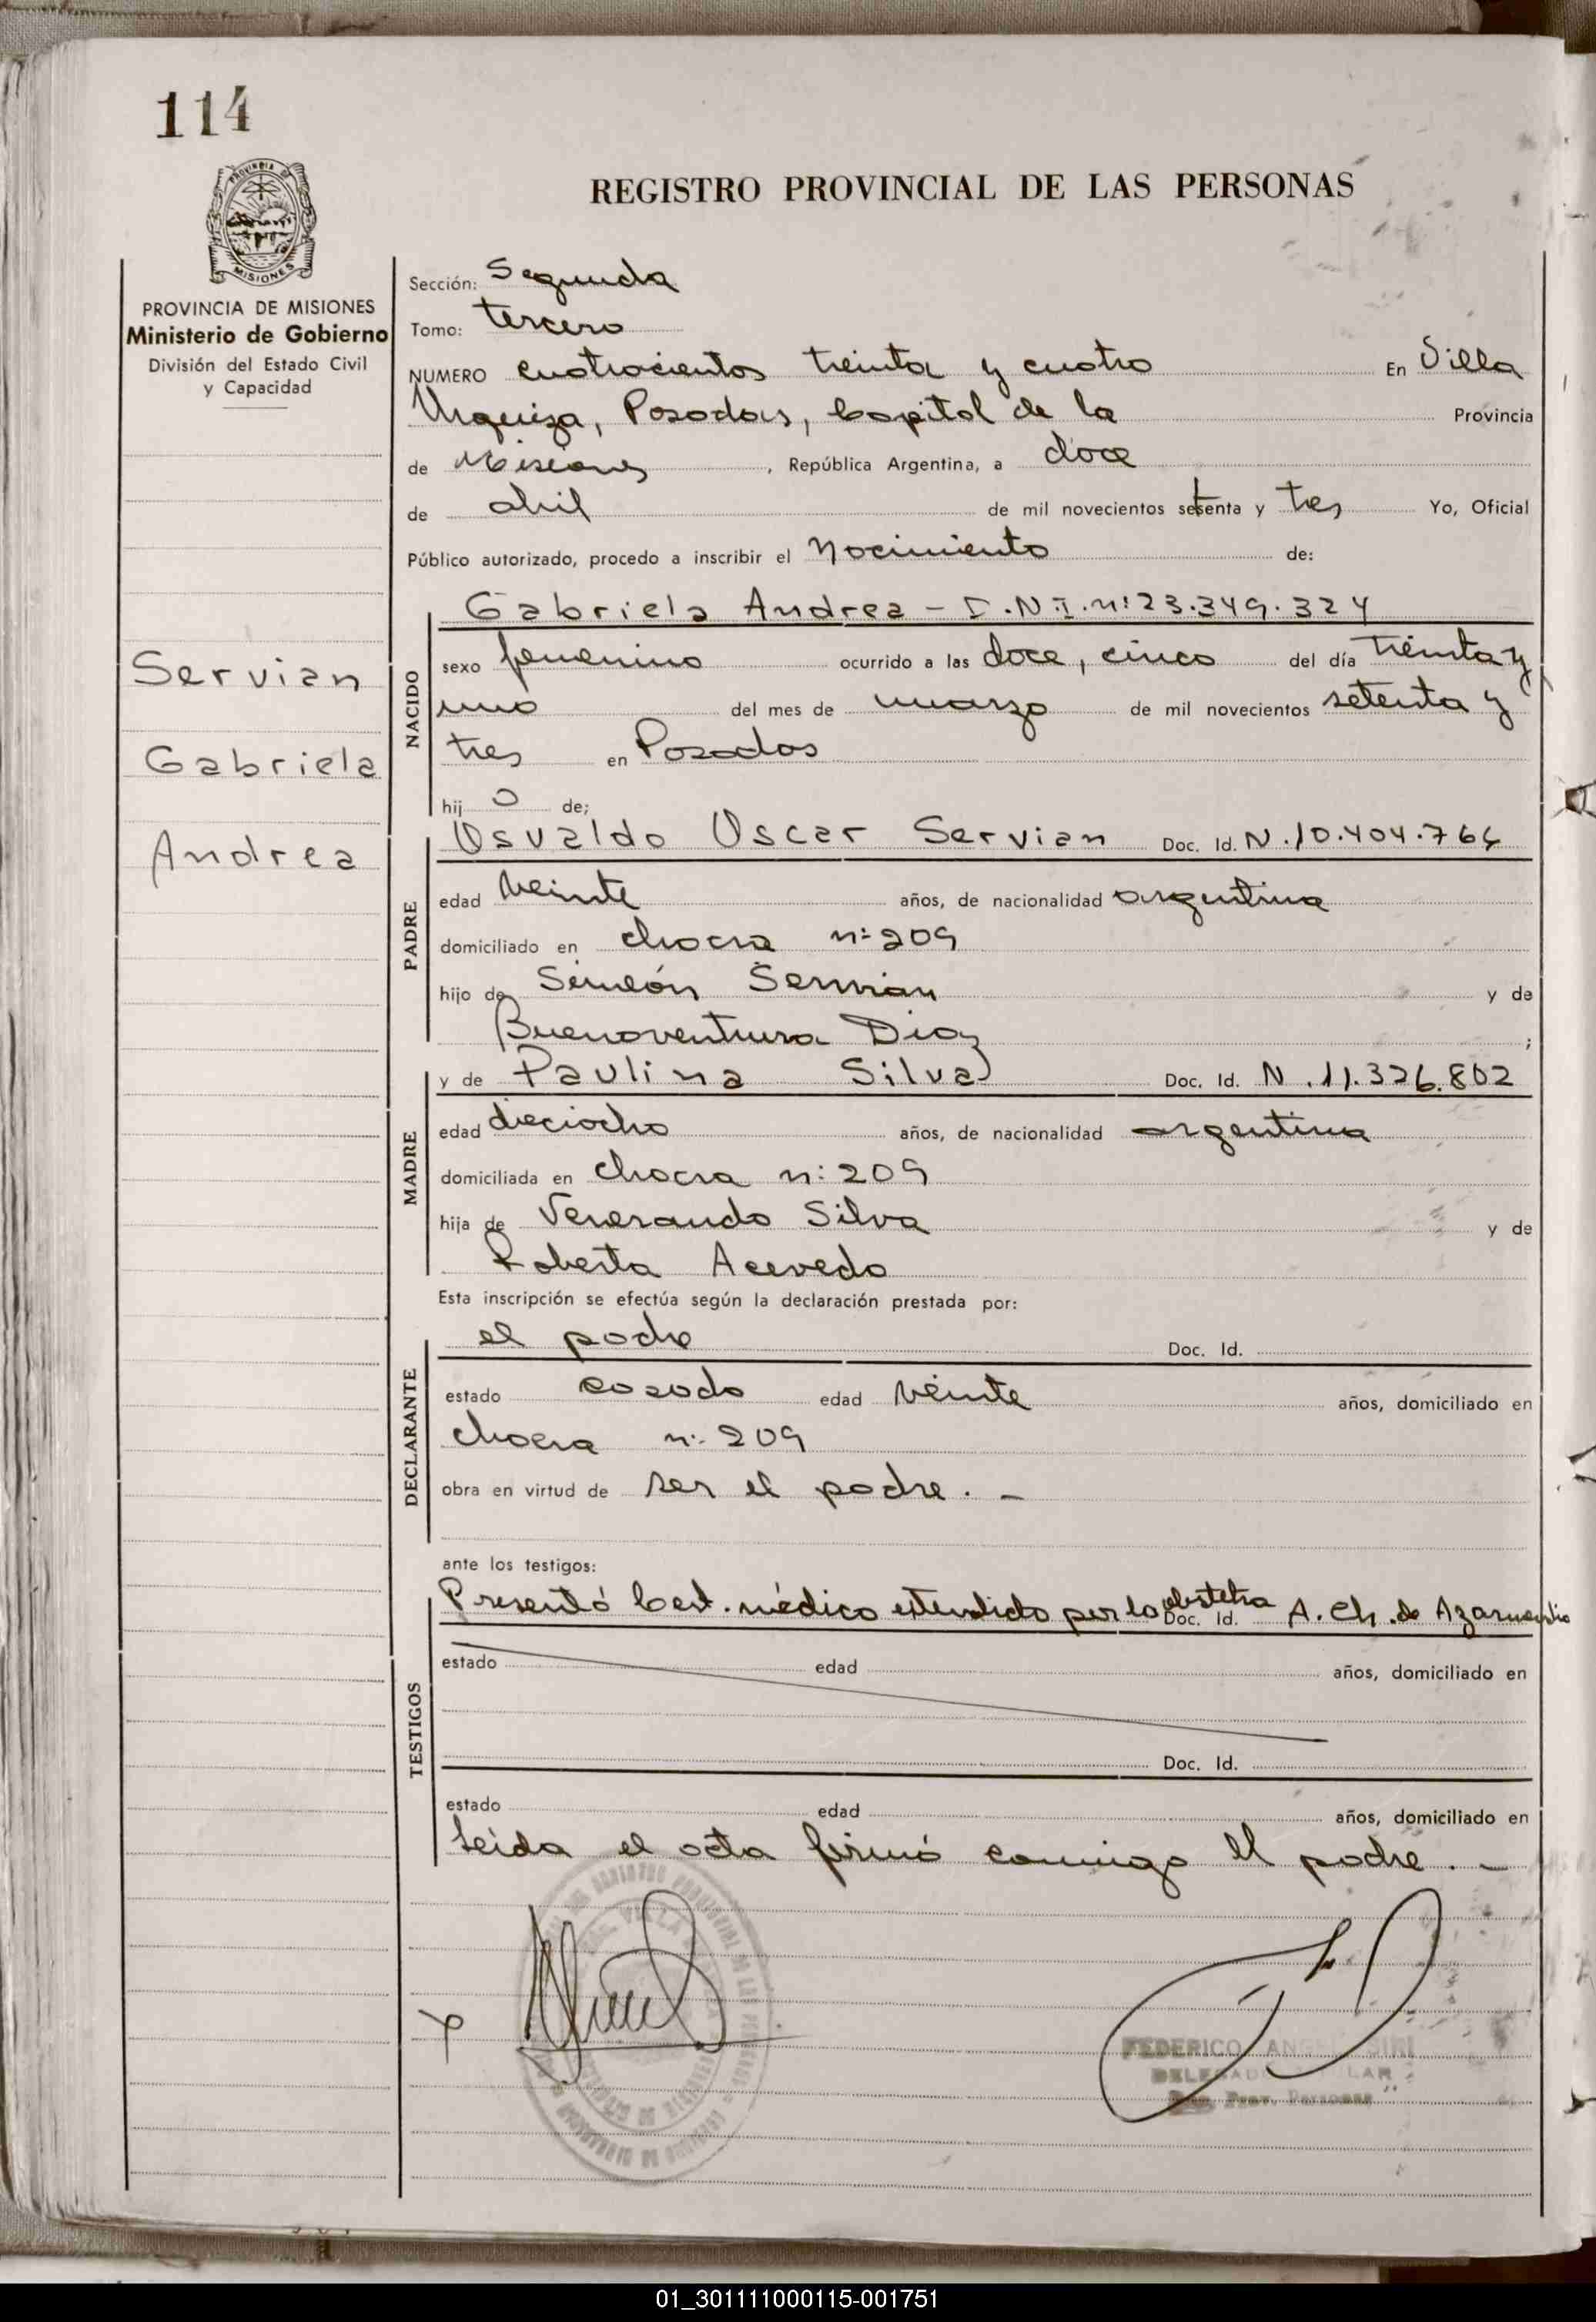 114
PROVINCIA DE
MISIONES
PROVINCIA DE MISIONES
Ministerio de Gobierno
División del Estado Civil
y Capacidad
Servian
Gabriela
Andrea
REGISTRO PROVINCIAL DE LAS PERSONAS
Sección: Segunda
Tomo: tercero
NUMERO cuatrocientos treinta y cuatro En Villa
Urquiza, Posadas, Capital de la Provincia
de Misiones, República Argentina, a doce
de abril de mil novecientos setenta y tres Yo, Oficial
Público autorizado, procedo a inscribir el Nacimiento de:
NACIDO
Gabriela Andrea - I.N.I. n: 23.349.324
sexo femenino ocurrido a las doce, cinco del día treinta y
uno del mes de marzo de mil novecientos setenta y
tres en Posadas
hij o de;
PADRE
Osvaldo Oscar Servian Doc. Id. N. 10.404.764
edad veinte años, de nacionalidad argentina
domiciliado en chacra n: 209
hijo de Simeón Servian y de
Buenaventura Diaz ;
MADRE
y de Paulina Silva Doc. Id. N. 11.326.802
edad dieciocho años, de nacionalidad argentina
domiciliada en chacra n: 209
hija de Venerando Silva y de
Roberta Acevedo
Esta inscripción se efectúa según la declaración prestada por:
DECLARANTE
el padre Doc. Id.
estado casado edad veinte años, domiciliado en
chacra n: 209
obra en virtud de ser el padre. -
ante los testigos:
TESTIGOS
Presentó Cert. médico extendido por la obstetra Doc. Id. A. Ch. de
estado edad años, domiciliado en
Doc. Id.
estado edad años, domiciliado en
Leida el acta firmó conmigo el padre. -
FEDERICO
01_301111000115-001751